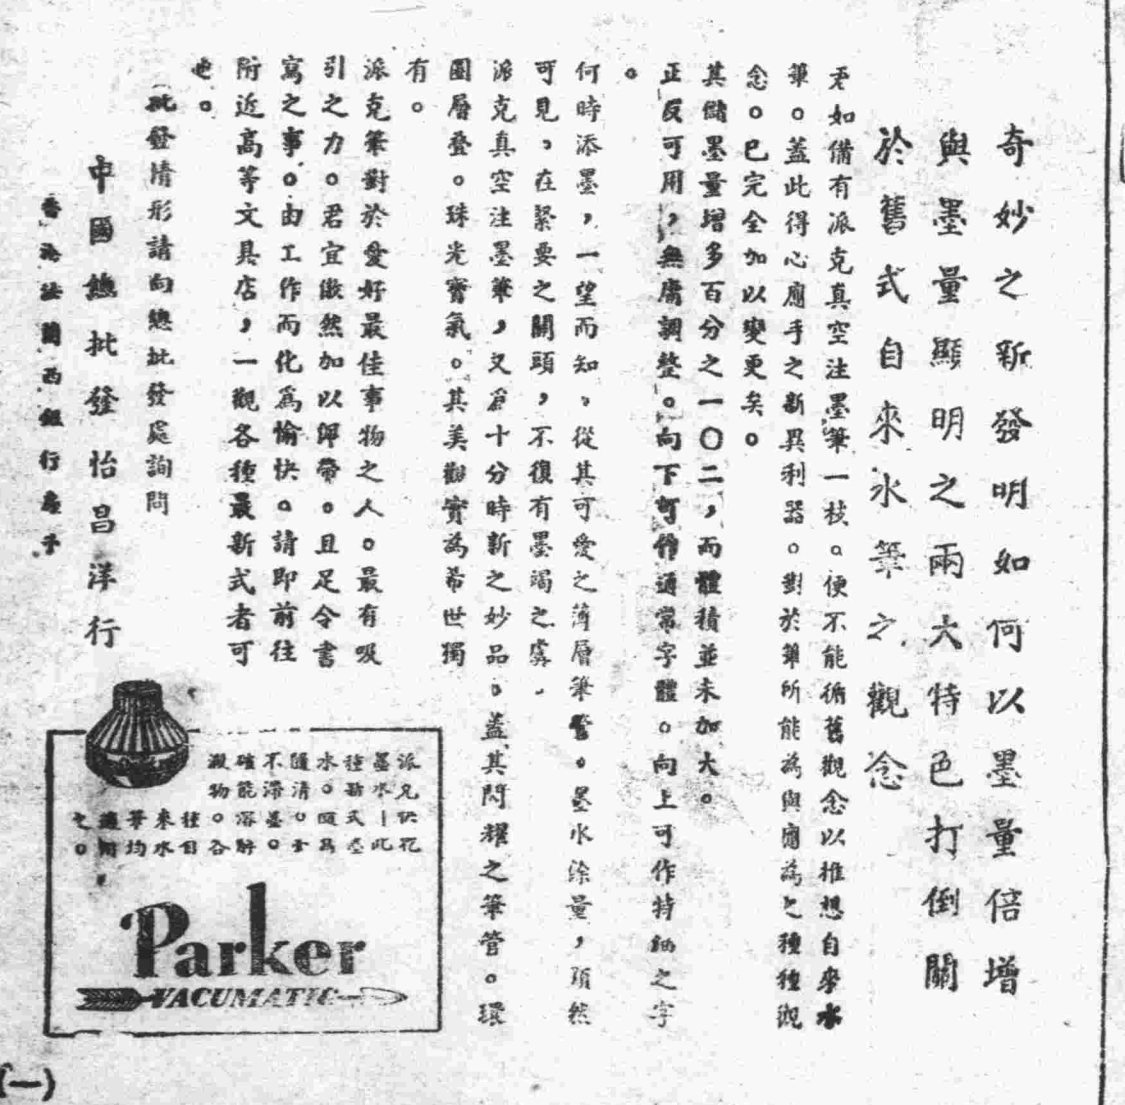 奇妙之新發明如何以墨量倍增
與墨量顯明之兩大特色打倒關
於舊式自來水筆之觀念
君如備有派克真空注墨筆一枝。便不能循舊觀念以推想自來水
筆。蓋此得心應手之新異利器。對於筆所能為與應為之種種觀
念。已完全加以變更矣。
其儲墨量增多百分之一〇二，而體積並未加大。
正反可用，無庸調整。向下可作通常字體。向上可作特細之字
。
何時添墨，一望而知。從其可愛之薄層筆管。墨水餘量，頃然
可見，在緊要之關頭，不復有墨竭之虞。
派克真空注墨筆，又為十分時新之妙品。蓋其閃耀之筆管。環
圈層叠。珠光寶氣。其美觀實為希世獨
有。
派克筆對於愛好最佳事物之人。最有吸
引之力。君宜傲然加以佩帶。且足令書
寫之事。由工作而化爲愉快。請即前往
附近高等文具店，一觀各種最新式者可
也。
批發情形請向總批發處詢問
中國總批發怡昌洋行
香港法蘭西銀行樓下
派克快
墨水—此
種新式
水。
隨清。
不滯墨。
確能溶解
澱物。各
種自
來水
筆均
適用
之。
Parker
VACUMATIC
(一)